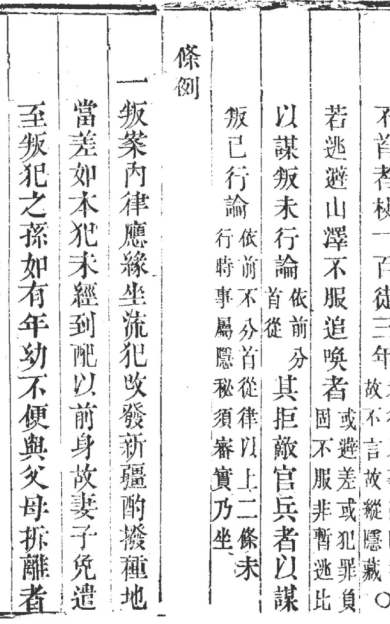 不首者杖一百徒三年故不言故縱隱藏○
若逃避山澤不服追喚者或避差或犯罪負固不服非暫逃比
以謀叛未行論依前分首從其拒敵官兵者以謀
叛已行論依前不分首從律以上二條未行時事屬隱秘須審實乃坐
條例
一叛案內律應緣坐流犯改發新疆酌撥種地
當差如本犯未經到配以前身故妻子免遣
至叛犯之孫如有年幼不便與父母拆離者